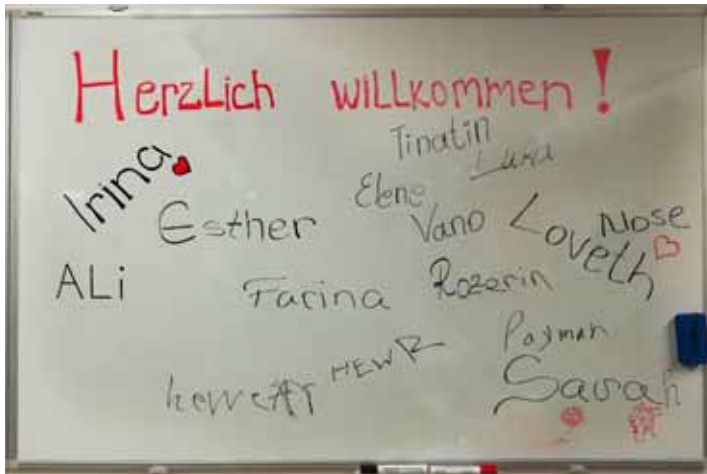 Herzlich willkommen!
Tinatin
Luka
Irina
Elene
Esther
Vano
Loveth
Nose
ALi
Farina
Rozerin
Payman
HEWR
Sarah